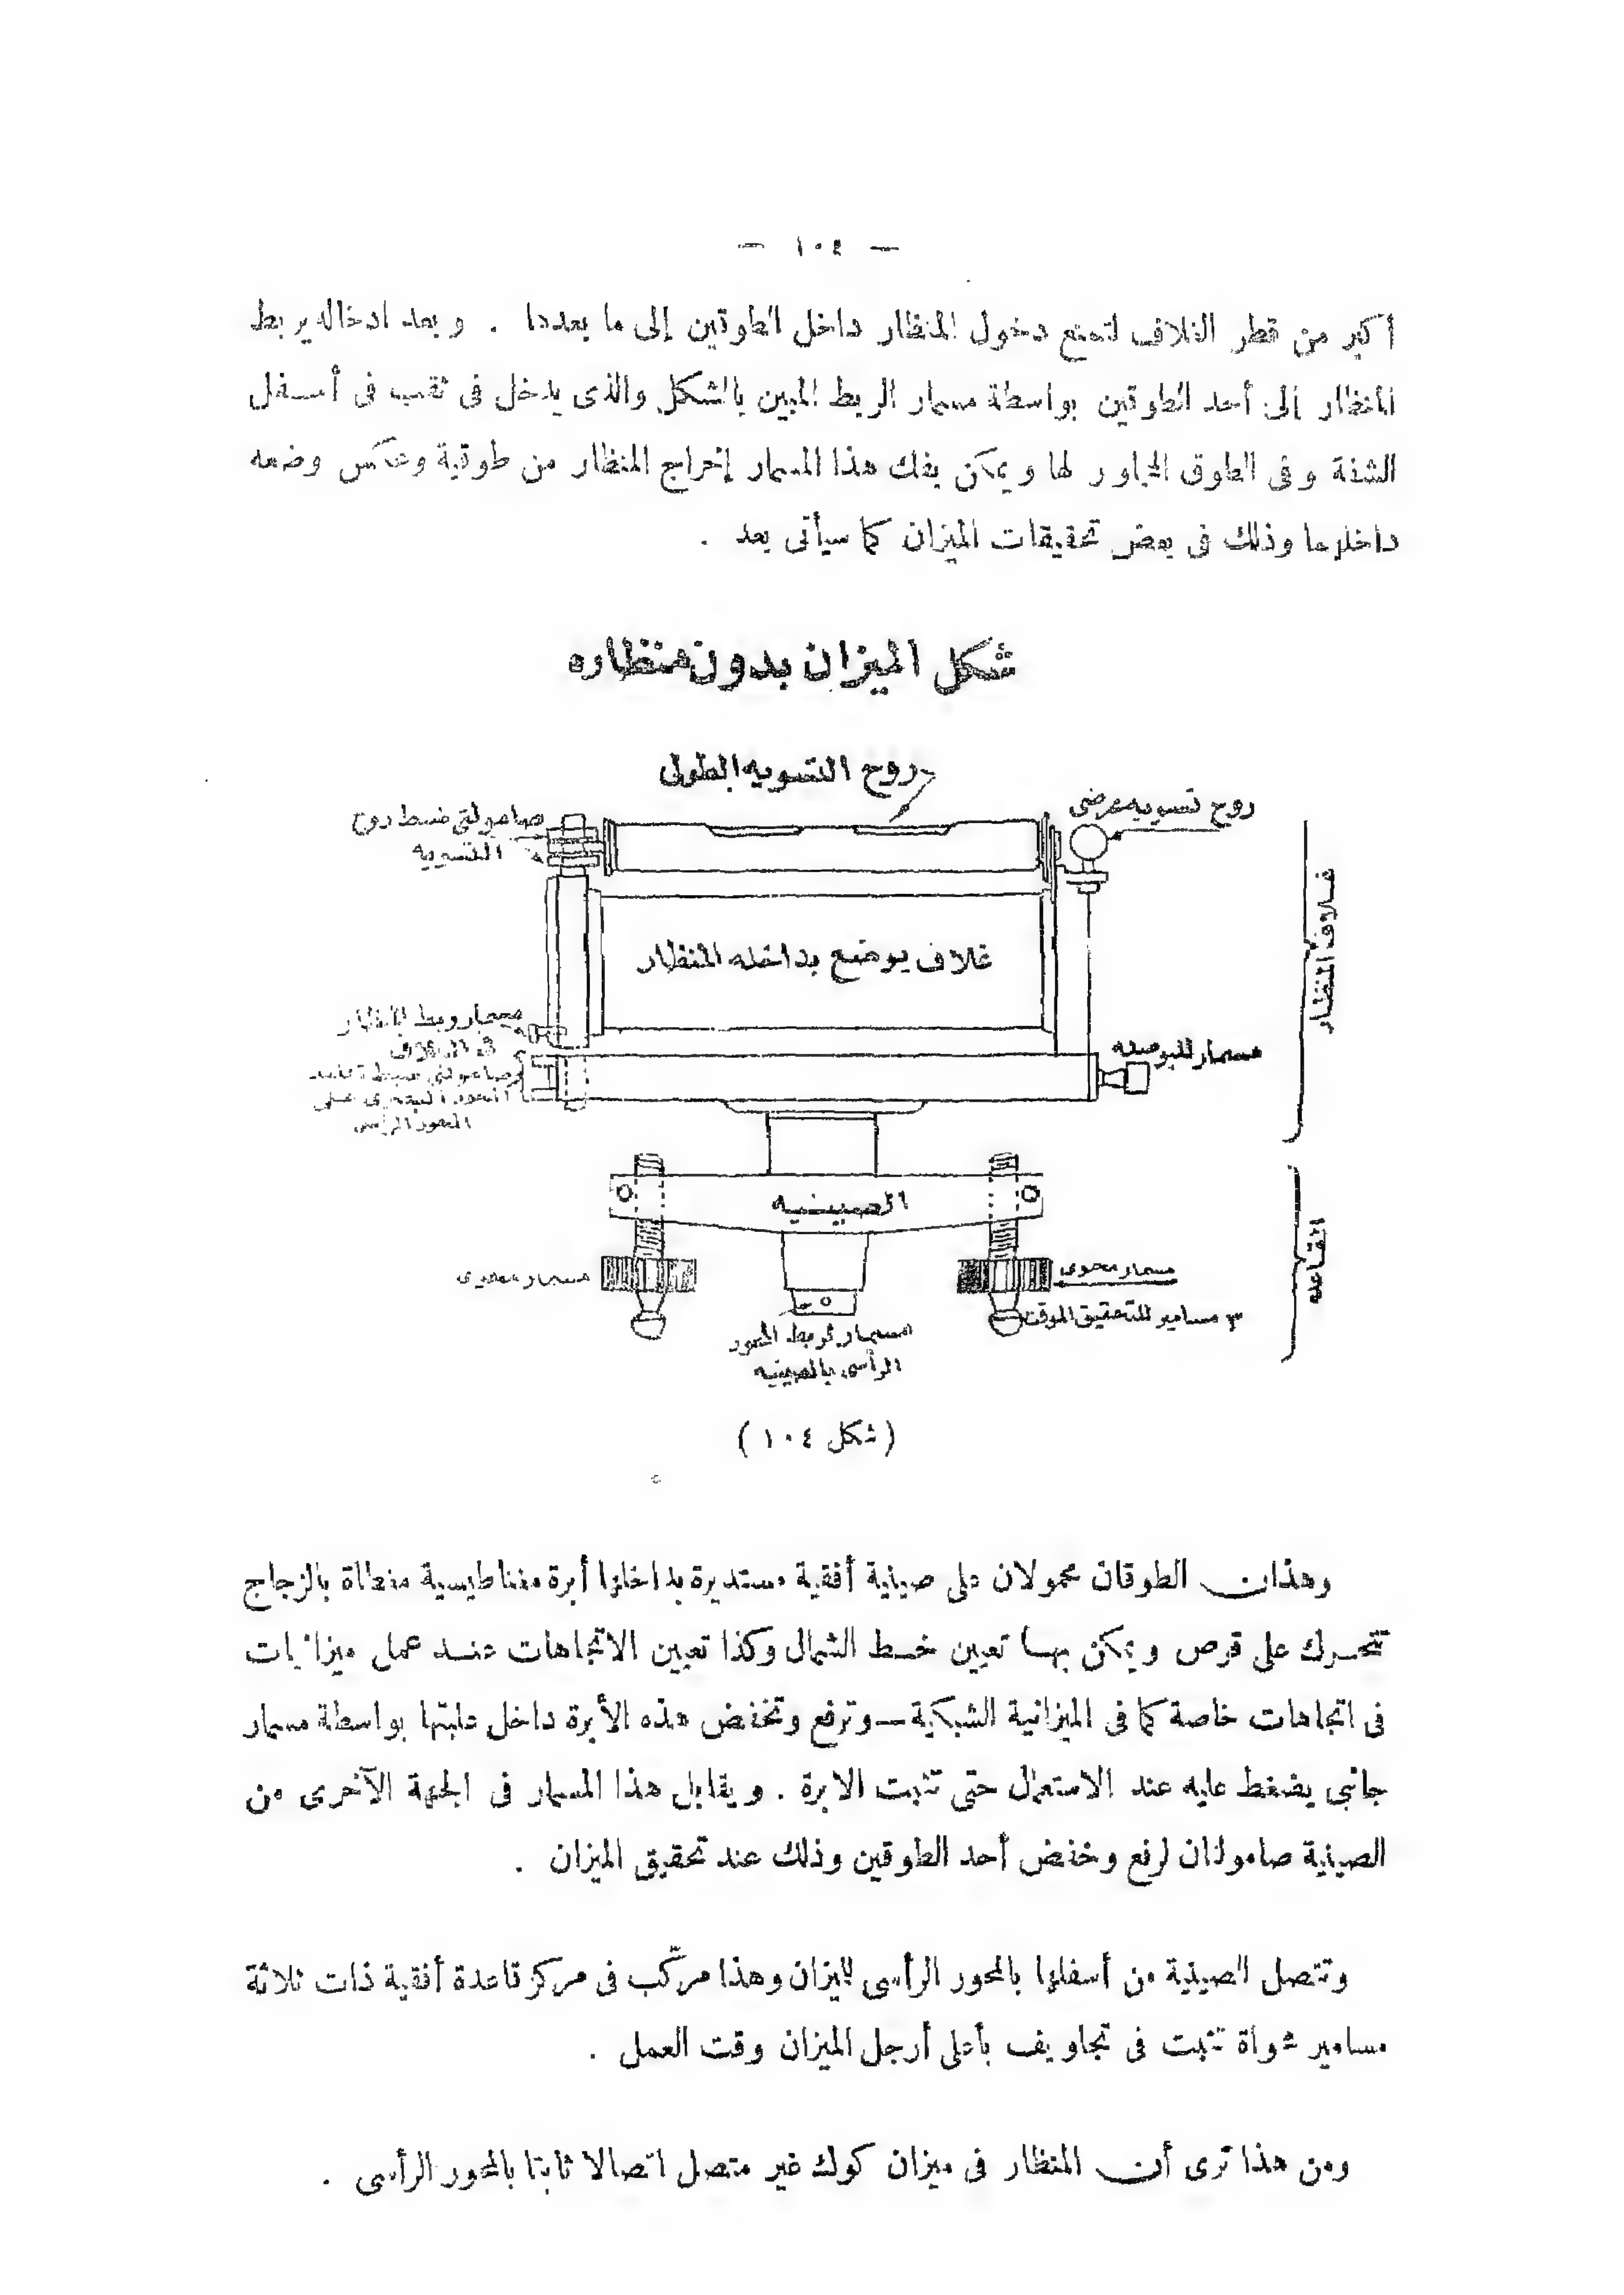 — ١٠٤ —
أكبر من قطر الغلاف لتمنع دخول المنظار داخل الطوقين إلى ما بعدها . وبعد ادخاله يربط
المنظار إلى أحد الطوقين بواسطة مسمار الربط المبين بالشكل والذى يدخل فى ثقب فى أسفل
الشفة وفى الطوق المجاور لها ويمكن بفك هذا المسمار إخراج المنظار من طوقية وعكس وضعه
داخلهما وذلك فى بعض تحقيقات الميزان كما سيأتى بعد .
شكل الميزان بدون منظاره
روح التسويه الطولى
روح تسويه عرضى
صامولتى ضبط روح
التسويه
غلاف المنظار
غلاف يوضع بداخله المنظار
مسمار ربط المنظار
مسمار للبوصله
صامولتى ضبط تعامد
المحور البصرى على
المحور الرأسى
الصينيه
القاعده
مسمار محوى
مسمار محوى
٣ مسامير للتحقيق الموقت
مسمار لربط المحور
الرأسى بالصينيه
(شكل ١٠٤)
وهذان الطوقان محمولان على صينية أفقية مستديرة بداخلها أبرة مغناطيسية مغطاة بالزجاج
تتحرك على قرص ويمكن بها تعيين خط الشمال وكذا تعيين الاتجاهات عند عمل ميزانيات
فى اتجاهات خاصة كما فى الميزانية الشبكية — وترفع وتخفض هذه الأبرة داخل علبتها بواسطة مسمار
جانبى يضغط عليه عند الاستعمال حتى تثبت الابرة . ويقابل هذا المسمار فى الجهة الآخرى من
الصينية صامولتان لرفع وخفض أحد الطوقين وذلك عند تحقيق الميزان .
وتتصل الصينية من أسفلها بالمحور الرأسى للميزان وهذا مركّب فى مركز قاعدة أفقية ذات ثلاثة
مسامير محواة تثبت فى تجاويف بأعلى أرجل الميزان وقت العمل .
ومن هذا ترى أن المنظار فى ميزان كوك غير متصل اتصالا ثابتا بالمحور الرأسى .